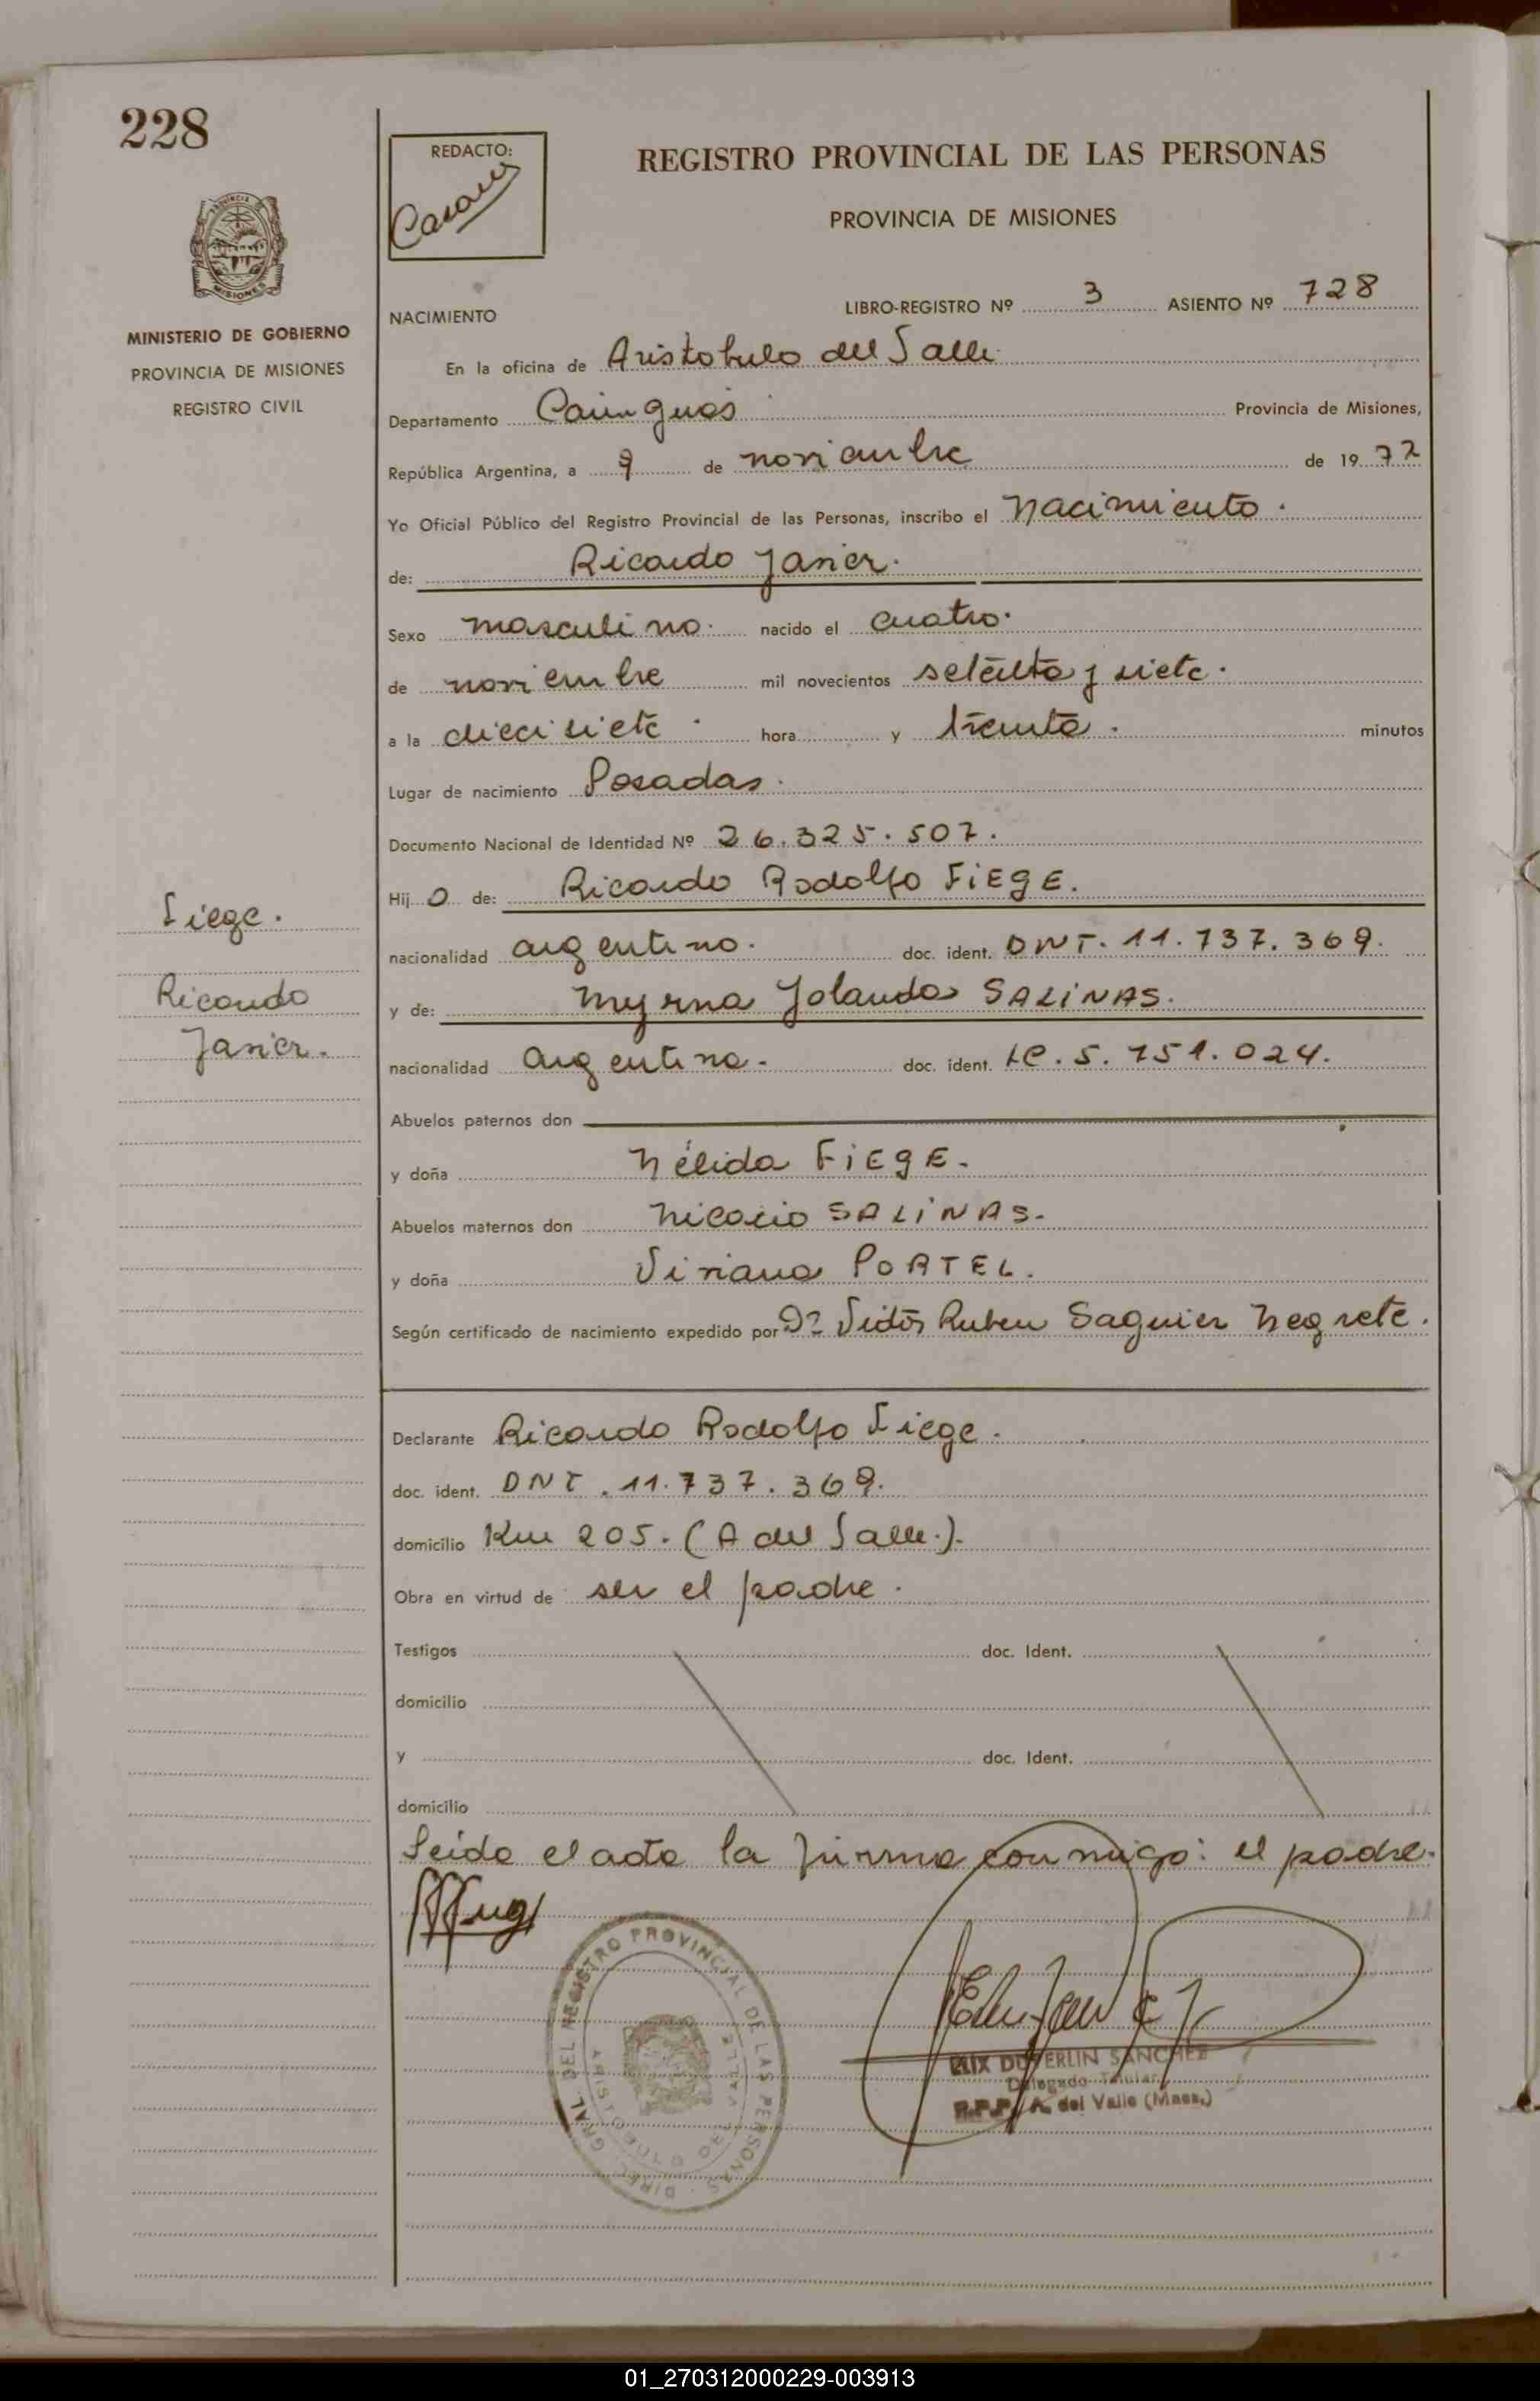 228
REDACTO:
REGISTRO PROVINCIAL DE LAS PERSONAS
PROVINCIA DE MISIONES
PROVINCIA DE
MISIONES
MINISTERIO DE GOBIERNO
PROVINCIA DE MISIONES
REGISTRO CIVIL
NACIMIENTO
LIBRO-REGISTRO Nº 3 ASIENTO Nº 728
En la oficina de Aristobulo del Valle
Departamento Cainguás Provincia de Misiones,
República Argentina, a 9 de noviembre de 1977
Yo Oficial Público del Registro Provincial de las Personas, inscribo el Nacimiento.
de: Ricardo Javier.
Sexo masculino. nacido el cuatro.
de noviembre mil novecientos setenta y siete.
a la diecisiete. hora y treinta. minutos
Lugar de nacimiento Posadas.
Documento Nacional de Identidad Nº 26.325.507.
Hij o de: Ricardo Rodolfo FIEGE.
nacionalidad argentino. doc. ident. DNI. 11.737.369.
y de: Myrna Yolanda SALINAS.
nacionalidad argentina. doc. ident. LC. 5.751.024.
Abuelos paternos don
y doña Nélida FIEGE.
Abuelos maternos don Nicasio SALINAS.
y doña Viviana PORTEL.
Según certificado de nacimiento expedido por Dr Victor Ruben Saguier Negrete.
Fiege.
Ricardo
Javier.
Declarante Ricardo Rodolfo Fiege.
doc. ident. DNI. 11.737.369.
domicilio Km 205. (A del Valle.).
Obra en virtud de ser el padre.
Testigos doc. Ident.
domicilio
y doc. Ident.
domicilio
Leida el acta la firma conmigo: el padre.
DIREC. GRAL. DEL REGISTRO PROVINCIAL DE LAS PERSONAS
ARISTOBULO DEL VALLE
SANCHEZ
Delegado Titular
R.P.P. A. del Valle (Mnes.)
01_270312000229-003913